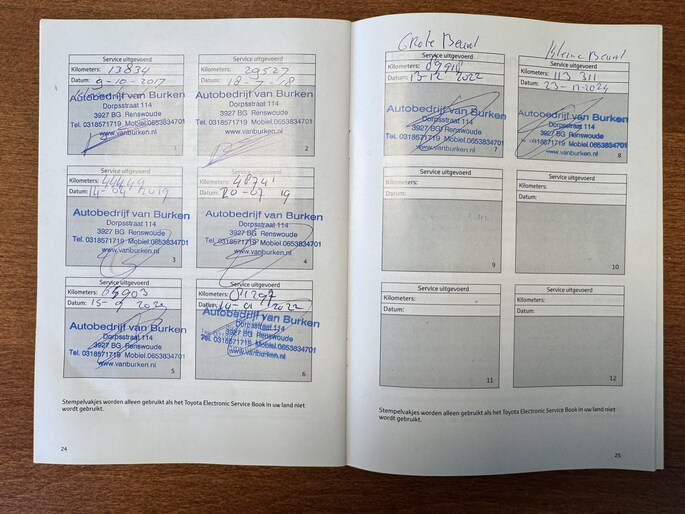 Service uitgevoerd
Kilometers: 13834
Datum: 9-10-2017
Autobedrijf van Burken
Dorpsstraat 114
3927 BG Renswoude
Tel. 0318571719 Mobiel.0653834701
www.vanburken.nl
1
Service uitgevoerd
Kilometers: 29527
Datum: 18-7-18
Autobedrijf van Burken
Dorpsstraat 114
3927 BG Renswoude
Tel. 0318571719 Mobiel.0653834701
www.vanburken.nl
2
Service uitgevoerd
Kilometers: 44449
Datum: 14-04 2019
Autobedrijf van Burken
Dorpsstraat 114
3927 BG Renswoude
Tel. 0318571719 Mobiel.0653834701
www.vanburken.nl
3
Service uitgevoerd
Kilometers:
Datum: 20-07 19
Autobedrijf van Burken
Dorpsstraat 114
3927 BG Renswoude
Tel. 0318571719 Mobiel.0653834701
www.vanburken.nl
4
Service uitgevoerd
Kilometers:
Datum:
Autobedrijf van Burken
Dorpsstraat 114
3927 BG Renswoude
Tel. 0318571719 Mobiel.0653834701
www.vanburken.nl
5
Service uitgevoerd
Kilometers:
Datum:
Autobedrijf van Burken
Dorpsstraat 114
3927 BG Renswoude
Tel. 0318571719 Mobiel.0653834701
www.vanburken.nl
6
Stempelvakjes worden alleen gebruikt als het Toyota Electronic Service Book in uw land niet
wordt gebruikt.
24
Grote Beurt
Service uitgevoerd
Kilometers:
Datum: 13-12 2022
Autobedrijf van Burken
Dorpsstraat 114
3927 BG Renswoude
Tel. 0318571719 Mobiel.0653834701
www.vanburken.nl
7
Kleine Beurt
Service uitgevoerd
Kilometers: 113 311
Datum: 23-11-2024
Autobedrijf van Burken
Dorpsstraat 114
3927 BG Renswoude
www.vanburken.nl
8
Service uitgevoerd
Kilometers:
Datum:
9
Service uitgevoerd
Kilometers:
Datum:
10
Service uitgevoerd
Kilometers:
Datum:
11
Service uitgevoerd
Kilometers:
Datum:
12
Stempelvakjes worden alleen gebruikt als het Toyota Electronic Service Book in uw land niet wordt
gebruikt.
25